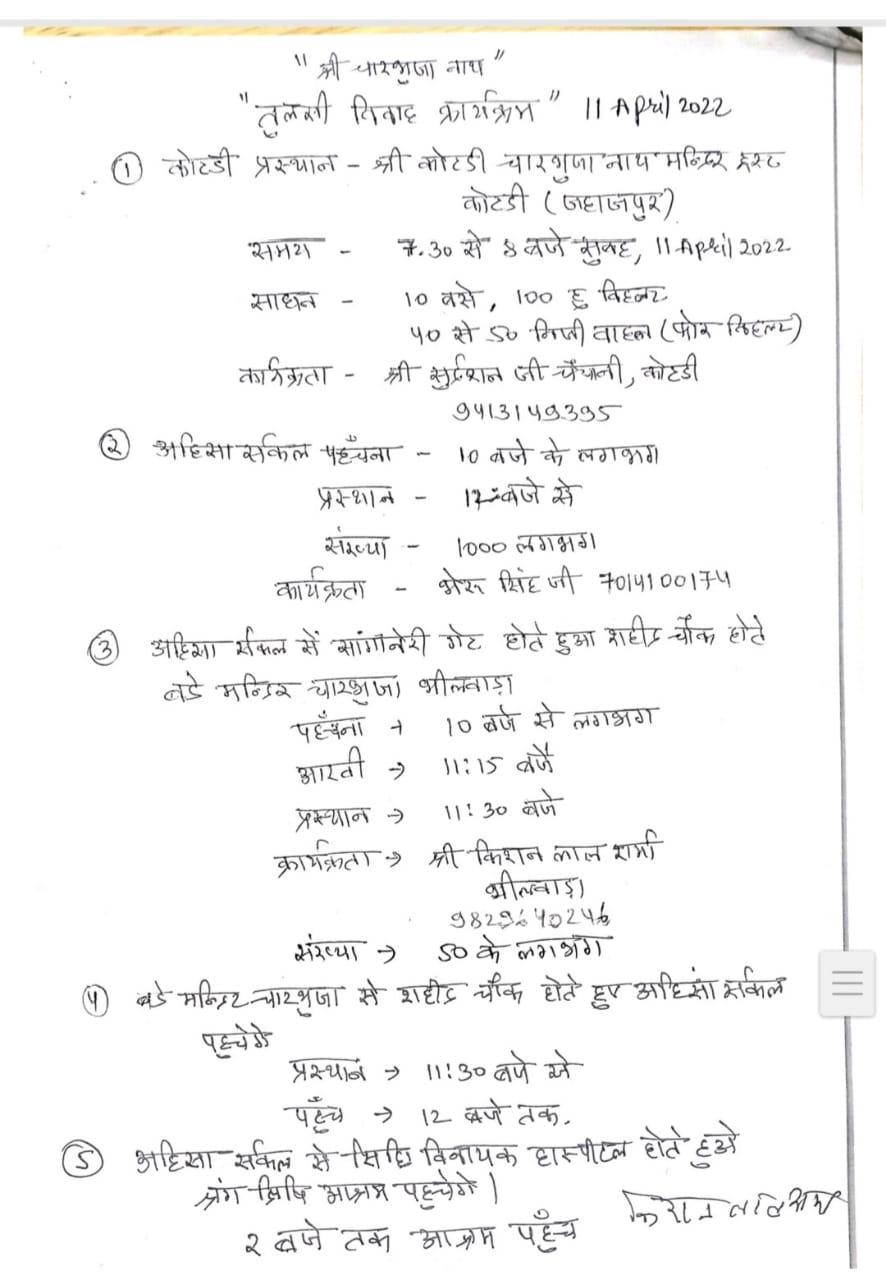 " श्री चारभुजा नाथ "
" तुलसी विवाह कार्यक्रम " 11 April 2022
① कोटडी प्रस्थान - श्री कोटडी चारभुजा नाथ मन्दिर ट्रस्ट
कोटडी ( जहाजपुर )
समय - 7.30 से 8 बजे सुबह, 11 April 2022
साधन - 10 बसे, 100 टु व्हिलर
40 से 50 निजी वाहन (फोर व्हिलर)
कार्यक्रता - श्री सुर्दशन जी चैचानी, कोटडी
9413149395
② अहिसा र्सकिल पहुँचना - 10 बजे के लगभग
प्रस्थान - 12 बजे से
संख्या - 1000 लगभग
कार्यक्रता - भेरू सिंह जी 7014100174
③ अहिसा र्सकल सें सांगानेरी गेट होते हुआ शहीद चौक होते
बडे मन्दिर चारभुजा भीलवाड़ा
पहुँचना → 10 बजे से लगभग
आरती → 11:15 बजै
प्रस्थान → 11:30 बजे
कार्यक्रता → श्री किशन लाल शर्मा
भीलवाड़ा
संख्या → 50 के लगभग
④ बडे मन्दिर चारभुजा से शहीद चौक होते हुए अहिंसा र्सकल
पहुचेगे
प्रस्थान → 11:30 बजे से
पहुँच → 12 बजे तक.
⑤ अहिसा र्सकल से सिद्धि विनायक हास्पीटल होते हुओ
आश्रम पहुचेगे |
2 बजे तक आश्रम पहुँच